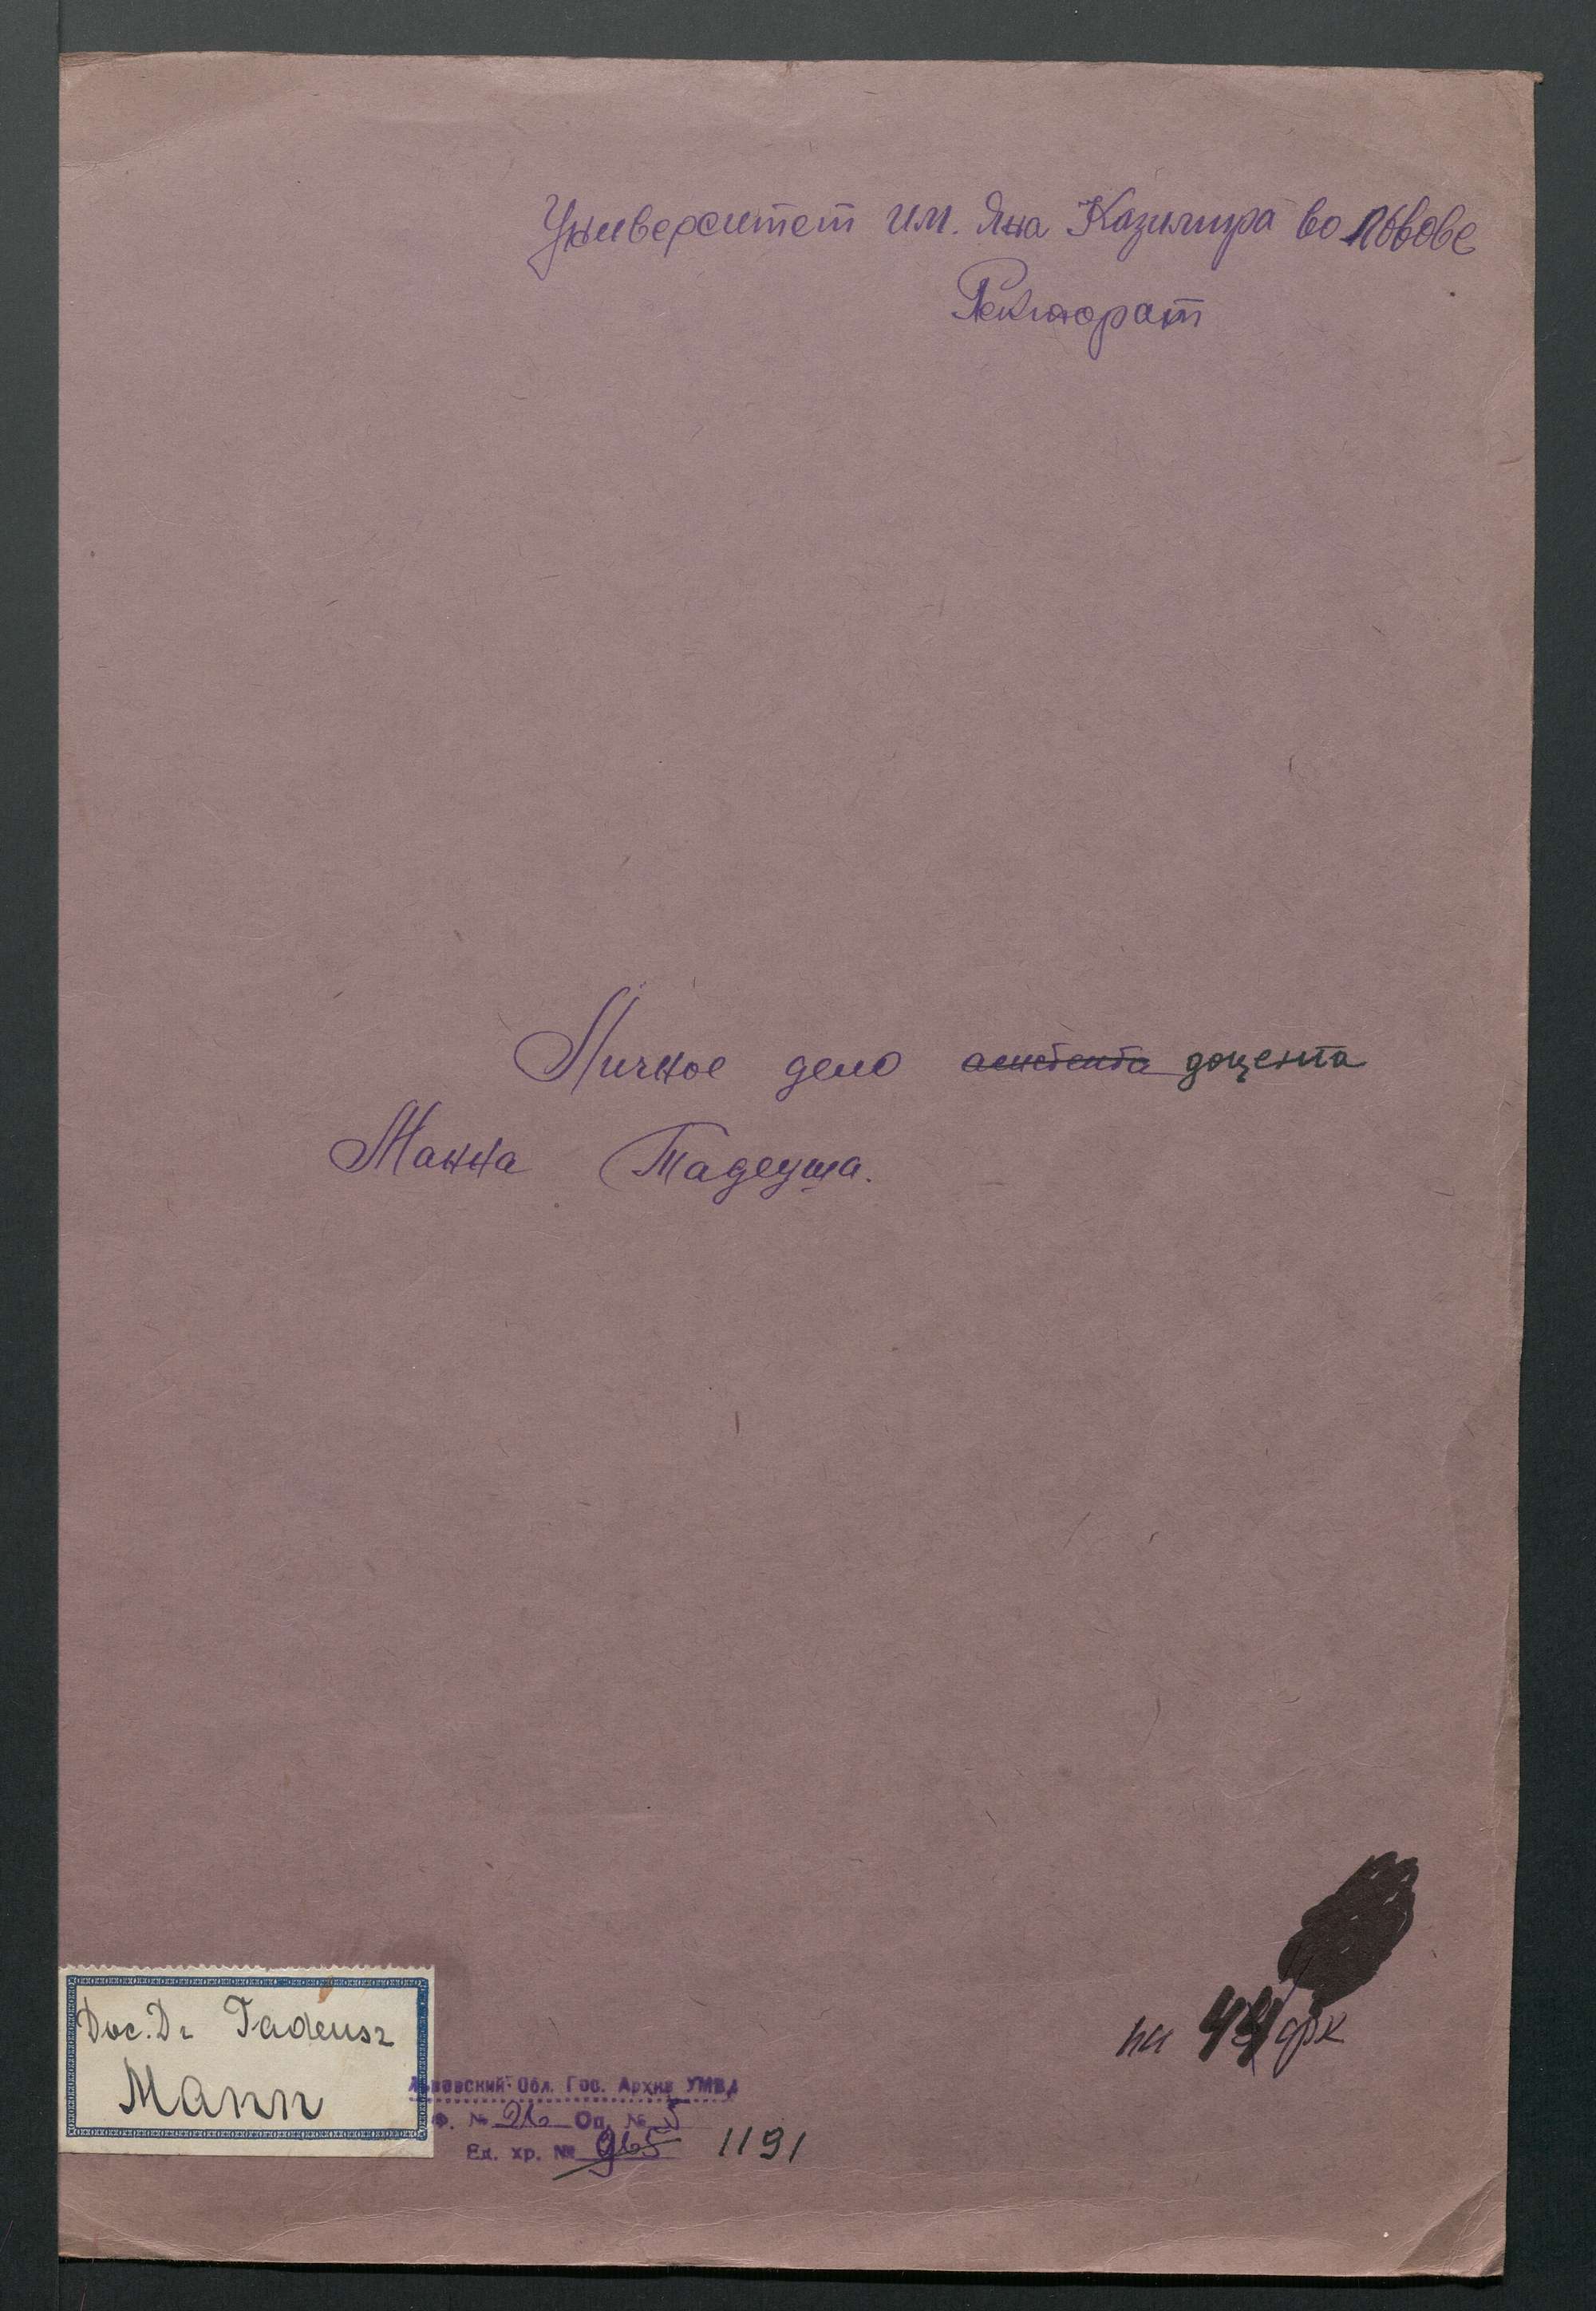 Университет им. Яна Казимира во Львове
Ректорат
Личное дело асистента доцента
Манна Тадеуша.
Doc. Dr Tadeusz
Mann
Львовский Обл. Гос. Архив УМВД
Ф. № 26 Оп. № 5
Ед. хр. № 965 1191
на 44